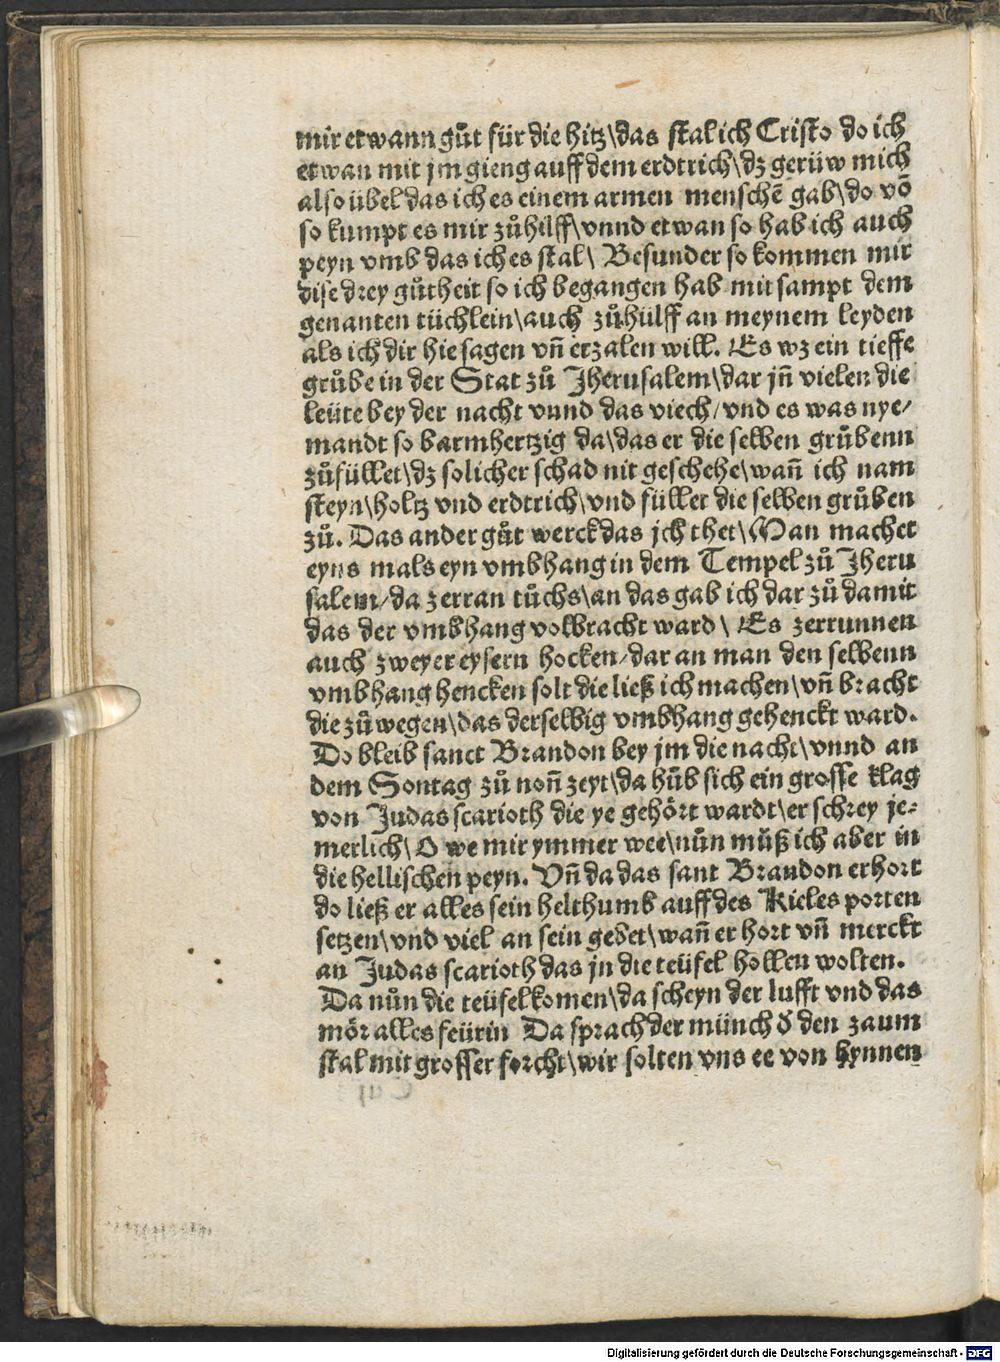 mir etwann gůt für die hitz\das stal ich Cristo do ich
etwan mit jm gieng auff dem erdtrich\dz gerüw mich
also übel das ich es einem armen menschē gab\do võ
so kumpt es mir zůhilff\vnnd etwan so hab ich auch
peyn vmb das ich es stal\ Besunder so kommen mir
dise drey gůtheit so ich begangen hab mit sampt dem
genanten tüchlein\auch zůhülff an meynem leyden
als ich dir hie sagen vñ erzalen will. Es wz ein tieffe
grůbe in der Stat zů Jherusalem\dar jñ vielen die
leüte bey der nacht vnnd das viech/vnd es was nye/
mandt so barmhertzig da\das er die selben grůbenn
zůfüllet\dz solicher schad nit geschehe\wañ ich nam
steyn\holtz vnd erdtrich\vnd füllet die selben grůben
zů. Das ander gůt werck das jch thet\Man machet
eyns mals eyn vmbhang in dem Tempel zů Jheru
salem/da zerran tůchs\an das gab ich dar zů damit
das der vmbhang volbracht ward\ Es zerrunnen
auch zweyer eysern hocken/dar an man den selbenn
vmbhang hencken solt die ließ ich machen\vñ bracht
die zů wegen\das derselbig vmbhang gehenckt ward.
Do bleib sanct Brandon bey jm die nacht\vnnd an
dem Sontag zů noñ zeyt\da hůb sich ein grosse klag
von Judas scarioth die ye gehört wardt\er schrey je⸗
merlich\O we mir ymmer wee\nůn můß ich aber in
die hellischen peyn. Vñ da das sant Brandon erhort
do ließ er alles sein helthumb auff des Kieles porten
setzen\vnd viel an sein gebet\wañ er hort vñ merckt
an Judas scarioth das jn die teüfel hollen wolten.
Da nůn die teüfel komen\da scheyn der lufft vnd das
mör alles feürin Da sprach der münch d̕ den zaum
stal mit grosser forcht\wir solten vns ee von hynnen
Digitalisierung gefördert durch die Deutsche Forschungsgemeinschaft - DFG